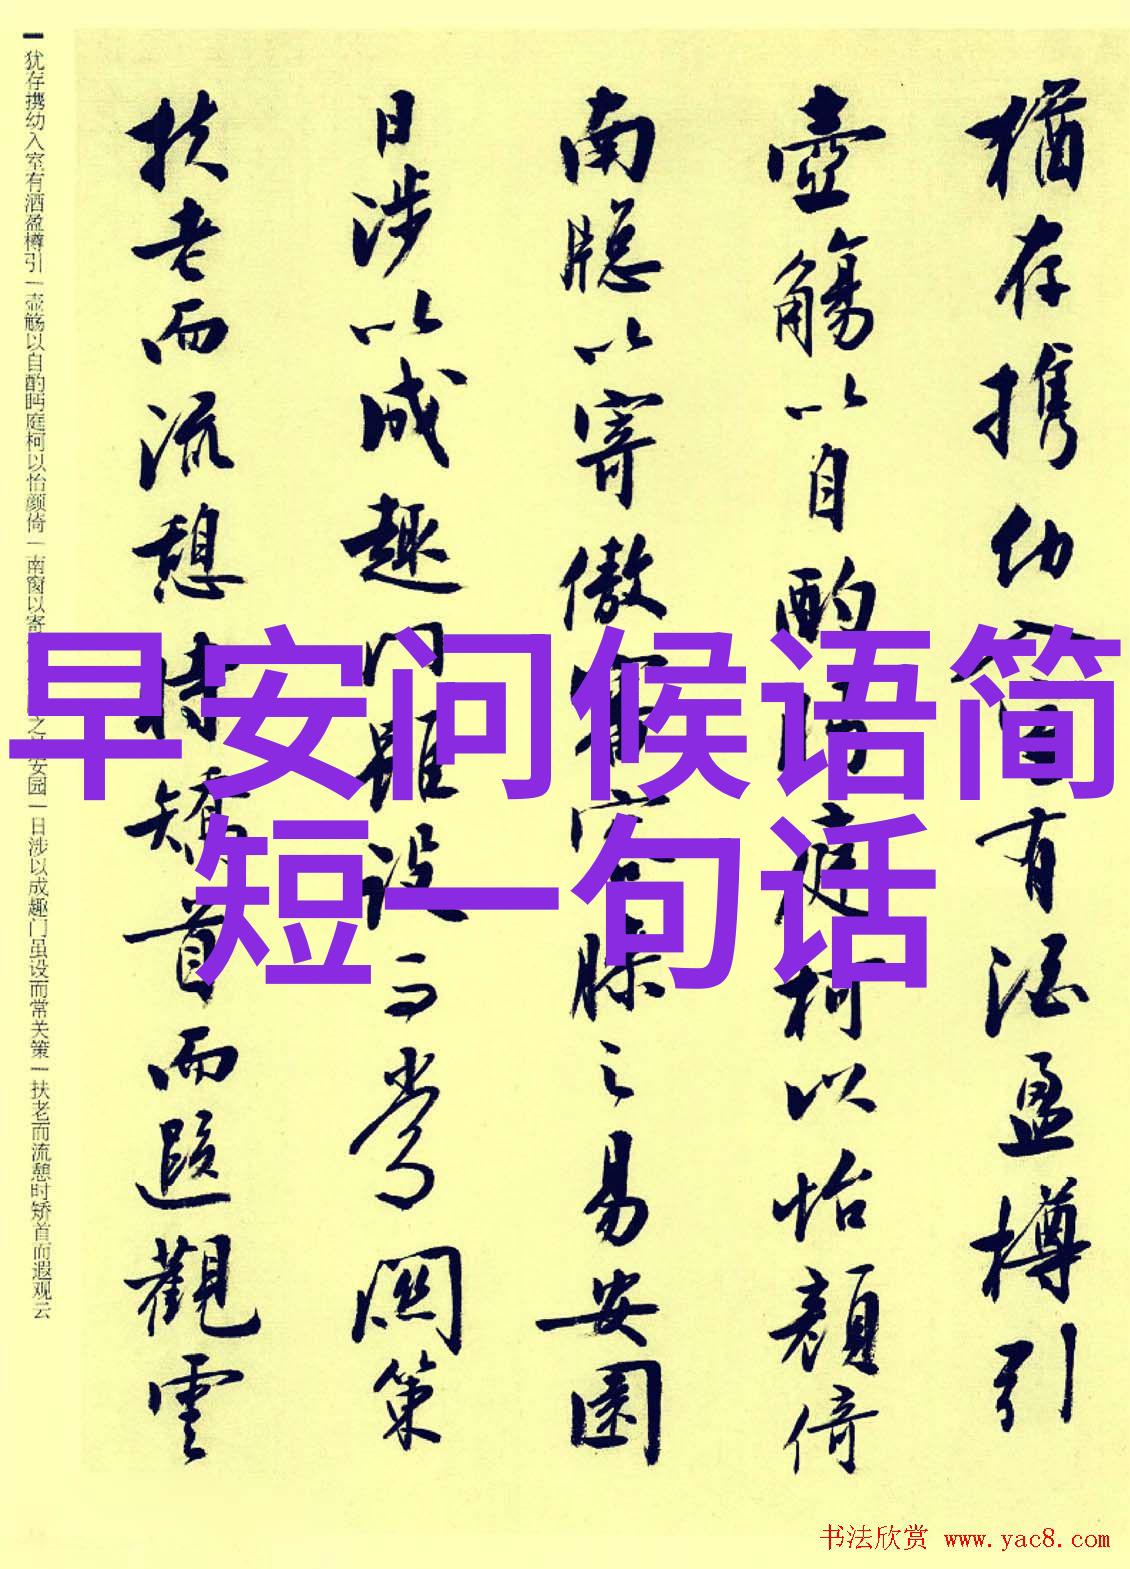 猶存携幼入室有酒盈樽引
壺觴以自酌眄庭柯以怡顏倚
南牕以寄傲審容膝之易安園
日涉以成趣門雖設而常關策
扶老而流憩時矯首而遐觀雲
犹存携幼入室有洒盈樽引|壶觞以自酌眄庭柯以怡颜倚|南窗以寄之易安园|日涉以成趣门虽设而常关策|扶老而流憩时矫首而遐观云
早安问候语简
短一句话
书法欣赏 www.yac8.com